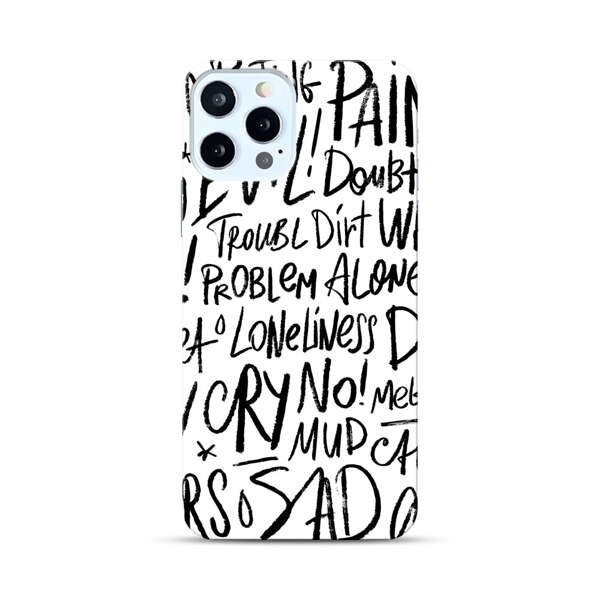 PAIN
L! Doubt
TROUBL Dirt W
! PROBLEM ALONE
A LONELiNESS D
CRY NO! Mel
* MUD CA
RS SAD